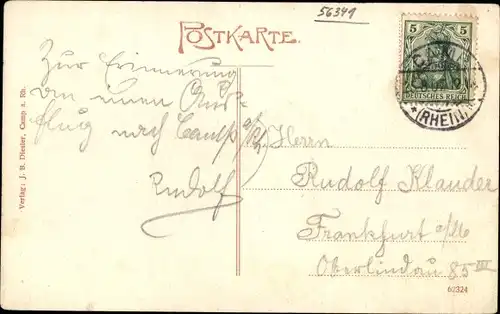 56349
POSTKARTE.
5
DEUTSCHES REICH
(RHEIN)
Zur Erinnerung
an einen Aus-
flug nach Camp a/Rh.
Rudolf
Herrn
Rudolf Klauder
Frankfurt a/M
Oberlindau 85 III
62324
Verlag: J. B. Diesler, Camp a. Rh.